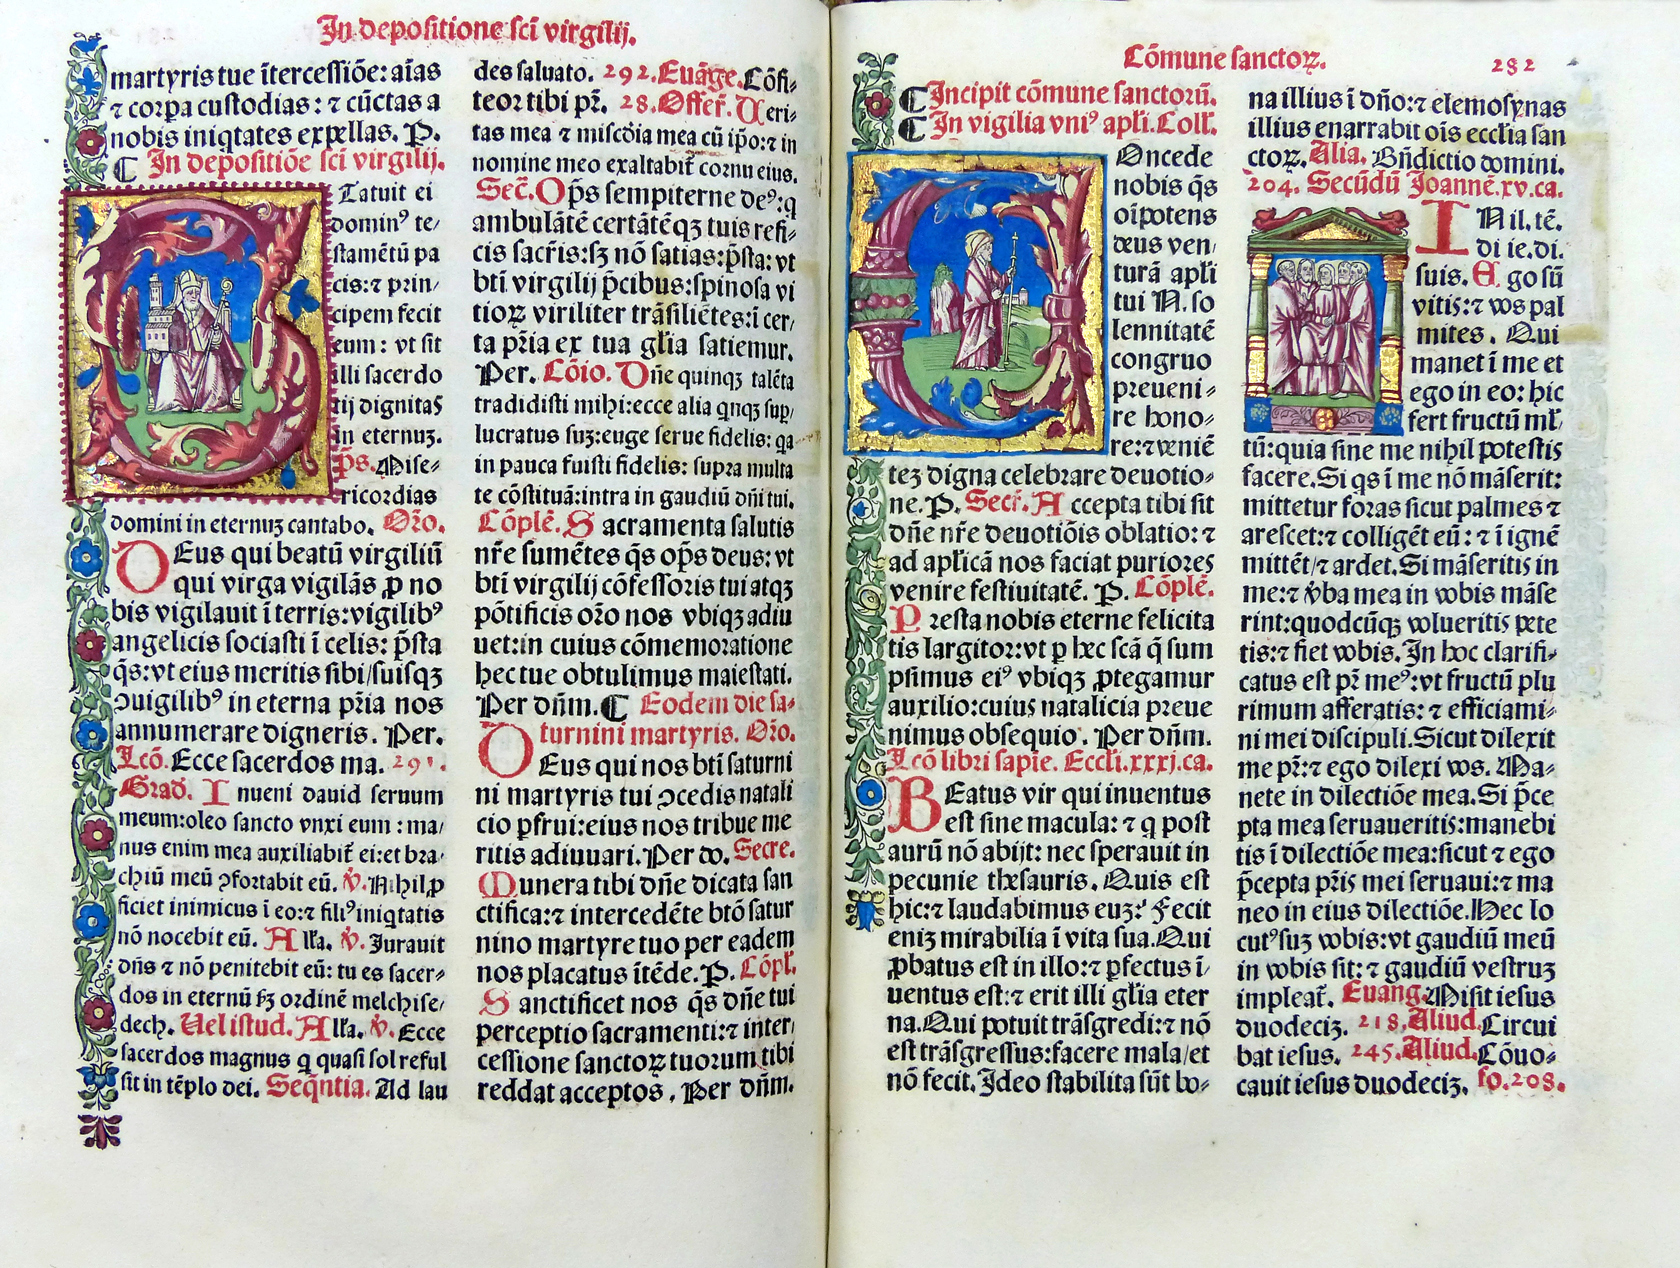 In depositione sci̅ virgilij.
martyris tue i̅tercessio̅e: ai̅as
⁊ corpa custodias: ⁊ cu̅ctas a
nobis iniq̇tates expellas. P.
¶ In depositio̅e sci̅ virgilij.
STatuit ei
dominꝰ te/
stame̅tu̅ pa
cis: ⁊ prin/
cipem fecit
eum: vt sit
illi sacerdo
tij dignitas
in eternuꝫ.
p̅s. Mise-
ricordias
domini in eternuꝫ cantabo. Oro̅.
DEus qui beatu̅ virgiliu̅
qui virga vigila̅s ꝓ no
bis vigilauit i̅ terris: vigilibꝰ
angelicis sociasti i̅ celis: p̅sta
q̅s: vt eius meritis sibi/suisqꝫ
ↄuigilibꝰ in eterna pr̅ia nos
annumerare digneris. Per.
Lco̅. Ecce sacerdos ma. 291.
Grad̅. Inueni dauid seruum
meum: oleo sancto vnxi eum: ma/
nus enim mea auxiliabit̅ ei: et bra/
chiu̅ meu̅ ↄfortabit eu̅. ꝟ. Nihil ꝓ
ficiet inimicus i̅ eo: ⁊ filiꝰ iniq̇tatis
no̅ nocebit eu̅. Alla̅. ꝟ. Jurauit
dn̅s ⁊ no̅ penitebit eu̅: tu es sacer-
dos in eternu̅ ẜꝫ ordine̅ melchise/
dech. Uel istud. Alla̅. ꝟ. Ecce
sacerdos magnus q̇ quasi sol reful
sit in te̅plo dei. Seq̅ntia. Ad lau
des saluato. 292. Eua̅ge. Co̅fi-
teor tibi pr̅. 28. Offer̅. Ueri-
tas mea ⁊ misco̅ia mea cu̅ ip̅o: ⁊ in
nomine meo exaltabit̅ cornu eius.
Sec̅. Op̅s sempiterne deꝰ: q̇
ambula̅te̅ certa̅te̅qꝫ tuis refi-
cis sacr̅is: sꝫ no̅ satias: p̅sta: vt
bt̅i virgilij p̅cibus: spinosa vi
tioꝝ viriliter tra̅silie̅tes: i̅ cer/
ta pr̅ia ex tua gl̅ia satiemur.
Per. Co̅io. Dn̅e quinqꝫ tale̅ta
tradidisti mihi: ecce alia qn̅qꝫ sup/
lucratus suꝫ: euge serue fidelis: q̇a
in pauca fuisti fidelis: supra multa
te co̅stitua̅: intra in gaudiu̅ dn̅i tui.
Co̅ple̅. Sacramenta salutis
nr̅e sume̅tes q̅s op̅s deus: vt
bt̅i virgilij co̅fessoris tui atqꝫ
po̅tificis oro̅ nos vbiqꝫ adiu
uet: in cuius co̅memoratione
hec tue obtulimus maiestati.
Per dn̅m. ¶ Eodem die sa-
turnini martyris. Oro̅.
DEus qui nos bt̅i saturni
ni martyris tui ↄcedis natali
cio ꝑfrui: eius nos tribue me
ritis adiuuari. Per do. Secre.
Munera tibi dn̅e dicata san
ctifica: ⁊ intercede̅te bto̅ satur
nino martyre tuo per eadem
nos placatus i̅te̅de. P. Co̅pl̅.
Sanctificet nos q̅s dn̅e tui
perceptio sacramenti: ⁊ inter/
cessione sanctoꝝ tuorum tibi
reddat acceptos. Per dn̅m.
Co̅mune sanctoꝝ. 282
¶ Incipit co̅mune sanctoru̅.
¶ In vigilia vniꝰ apl̅i. Coll̅.
COncede
nobis q̅s
oi̅potens
deus ven/
tura̅ apl̅i
tui N. so
lennitate̅
congruo
preueni-
re hono-
re: ⁊ venie̅
teꝫ digna celebrare deuotio-
ne. P. Secr̅. Accepta tibi sit
dn̅e nr̅e deuotio̅is oblatio: ⁊
ad aplica̅ nos faciat puriores
venire festiuitate̅. P. Co̅ple̅.
Presta nobis eterne felicita
tis largitor: vt ꝑ hec sca̅ q̅ sum
psimus eiꝰ vbiqꝫ ꝓtegamur
auxilio: cuius natalicia preue
nimus obsequio. Per dn̅m.
Lco̅ libri sapie̅. Eccl̅i. xxxj. ca.
BEatus vir qui inuentus
est sine macula: ⁊ q̇ post
auru̅ no̅ abijt: nec sperauit in
pecunie thesauris. Quis est
hic: ⁊ laudabimus euꝫ? Fecit
eniꝫ mirabilia i̅ vita sua. Qui
ꝓbatus est in illo: ⁊ ꝑfectus i̅/
uentus est: ⁊ erit illi gl̅ia eter
na. Qui potuit tra̅sgredi: ⁊ no̅
est tra̅sgressus: facere mala/et
no̅ fecit. Ideo stabilita su̅t bo-
na illius i̅ dn̅o: ⁊ elemosynas
illius enarrabit oi̅s eccl̅ia san
ctoꝝ. Alia. Bn̅dictio domini.
204. Secu̅du̅ Joanne̅. xv. ca.
IN il. te̅.
di ie. di.
suis. Ego su̅
vitis: ⁊ vos pal
mites. Qui
manet i̅ me et
ego in eo: hic
fert fructu̅ ml̅/
tu̅: quia sine me nihil potestis
facere. Si q̇s i̅ me no̅ ma̅serit:
mittetur foras sicut palmes ⁊
arescet: ⁊ collige̅t eu̅: ⁊ i̅ igne̅
mitte̅t/⁊ ardet. Si ma̅seritis in
me: ⁊ v̅ba mea in vobis ma̅se
rint: quodcu̅qꝫ volueritis pete
tis: ⁊ fiet vobis. In hoc clarifi-
catus est pr̅ meꝰ: vt fructu̅ plu
rimum afferatis: ⁊ efficiami-
ni mei discipuli. Sicut dilexit
me pr̅: ⁊ ego dilexi vos. Ma-
nete in dilectio̅e mea. Si p̅ce
pta mea seruaueritis: manebi
tis i̅ dilectio̅e mea: sicut ⁊ ego
p̅cepta pr̅is mei seruaui: ⁊ ma
neo in eius dilectio̅e. Hec lo
cutꝰ suꝫ vobis: vt gaudiu̅ meu̅
in vobis sit: ⁊ gaudiu̅ vestruꝫ
impleat̅. Euang. Misit iesus
duodeciꝫ. 218. Aliud. Circui
bat iesus. 245. Aliud. Co̅uo-
cauit iesus duodeciꝫ. fo. 208.